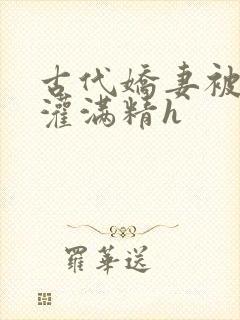 古代嬌妻被
灌滿精h
羅華送